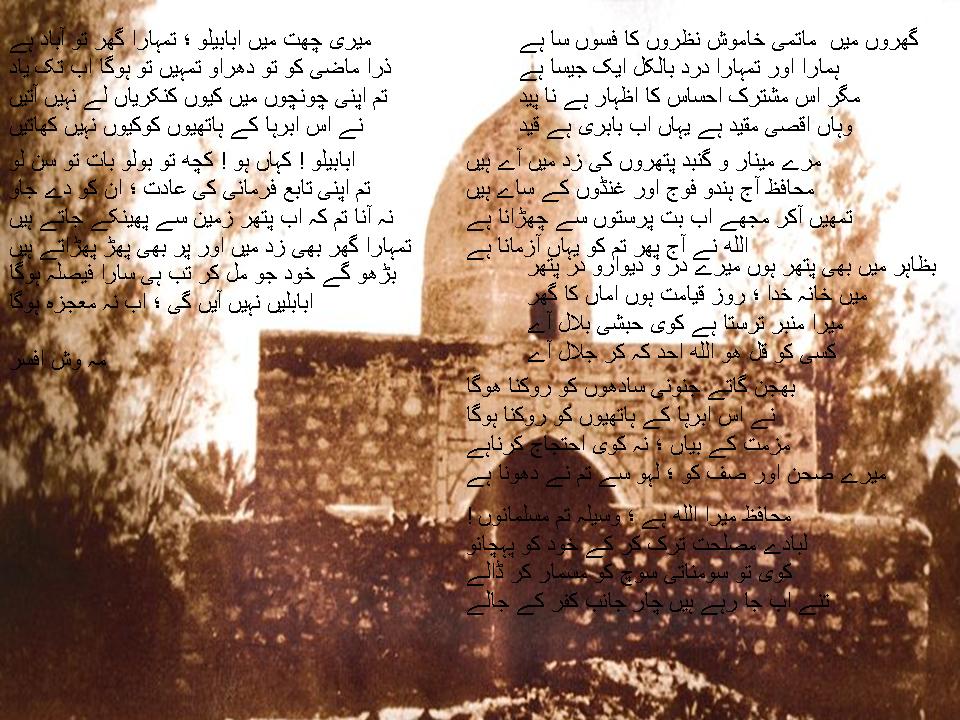 گھروں میں ماتمی خاموش نظروں کا فسوں سا ہے
ہمارا اور تمہارا درد بالکل ایک جیسا ہے
مگر اس مشترک احساس کا اظہار ہے نا پید
وہاں اقصی مقید ہے یہاں اب بابری ہے قید
مرے مینار و گنبد پتھروں کی زد میں آے ہیں
محافظ آج ہندو فوج اور غنڈوں کے ساے ہیں
تمھیں آکر مجھے اب بت پرستوں سے چھڑانا ہے
الله نے آج پھر تم کو یہاں آزمانا ہے
بظاہر میں بھی پتھر ہوں میرے در و دیوارو در پتھر
میں خانہ خدا ؛ روز قیامت ہوں اماں کا گھر
میرا منبر ترستا ہے کوی حبشی بلال آے
کسی کو قل ھو الله احد کہ کر جلال آے
بھجن گاتے جنونی سادھوں کو روکنا ھوگا
نے اس ابرہا کے ہاتھیوں کو روکنا ہوگا
مزمت کے بیاں ؛ نہ کوی احتجاج کرناہے
میرے صحن اور صف کو ؛ لہو سے تم نے دھونا ہے
محافظ میرا الله ہے ؛ وسیلہ تم مسلمانوں !
لبادے مصلحت ترک کر کے خود کو پہچانو
کوی تو سومناتی سوچ کو مسمار کر ڈالے
تنے اب جا رہے ہیں چار جانب کفر کے جالے
میری چھت میں ابابیلو ؛ تمہارا گھر تو آباد ہے
ذرا ماضی کو تو دھراو تمہیں تو ہوگا اب تک یاد
تم اپنی چونچوں میں کیوں کنکریاں لے نہیں آتیں
نے اس ابرہا کے ہاتھیوں کوکیوں نہیں کھاتیں
ابابیلو ! کہاں ہو ! کچھ تو بولو بات تو سن لو
تم اپنی تابع فرمانی کی عادت ؛ ان کو دے جاو
نہ آنا تم کہ اب پتھر زمین سے پھینکے جاتے ہیں
تمہارا گھر بھی زد میں اور پر بھی پھڑ پھڑاتے ہیں
بڑھو گے خود جو مل کر تب ہی سارا فیصلہ ہوگا
ابابلیں نہیں آیں گی ؛ اب نہ معجزہ ہوگا
مہ وش افسر